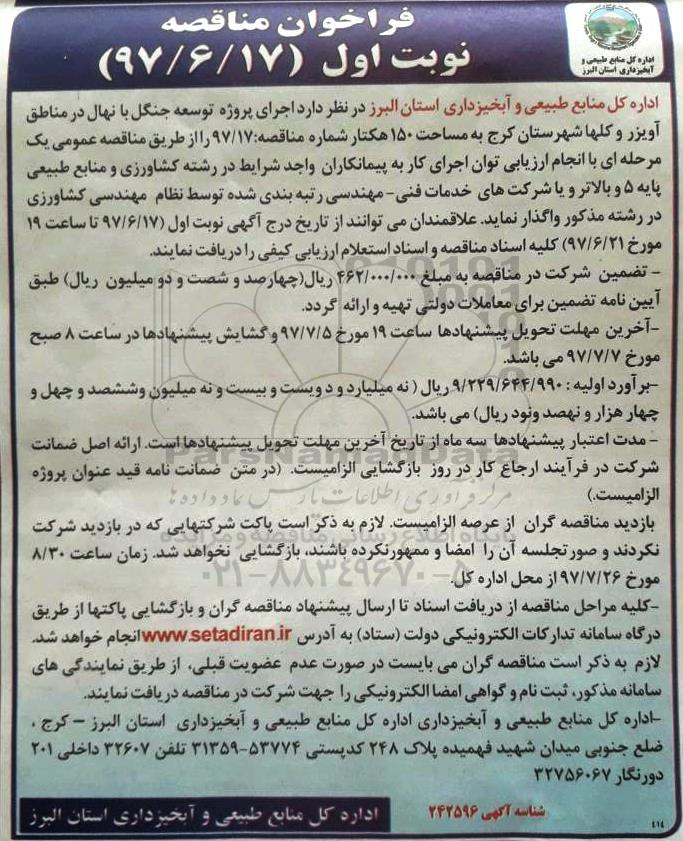 فراخوان مناقصه
نوبت اول (۹۷/۶/۱۷)
اداره کل منابع طبیعی و
آبخیزداری استان البرز
اداره کل منابع طبیعی و آبخیزداری استان البرز در نظر دارد اجرای پروژه توسعه جنگل با نهال در مناطق
آویزر و کلها شهرستان کرج به مساحت ۱۵۰ هکتار شماره مناقصه: ۹۷/۱۷ را از طریق مناقصه عمومی یک
مرحله ای با انجام ارزیابی توان اجرای کار به پیمانکاران واجد شرایط در رشته کشاورزی و منابع طبیعی
پایه ۵ و بالاتر و یا شرکت های خدمات فنی- مهندسی رتبه بندی شده توسط نظام مهندسی کشاورزی
در رشته مذکور واگذار نماید. علاقمندان می توانند از تاریخ درج آگهی نوبت اول (۹۷/۶/۱۷ تا ساعت ۱۹
مورخ ۹۷/۶/۲۱) کلیه اسناد مناقصه و اسناد استعلام ارزیابی کیفی را دریافت نمایند.
- تضمین شرکت در مناقصه به مبلغ ۴۶۲/۰۰۰/۰۰۰ ریال(چهارصد و شصت و دو میلیون ریال) طبق
آیین نامه تضمین برای معاملات دولتی تهیه و ارائه گردد.
-آخرین مهلت تحویل پیشنهادها ساعت ۱۹ مورخ ۹۷/۷/۵ و گشایش پیشنهادها در ساعت ۸ صبح
مورخ ۹۷/۷/۷ می باشد.
-برآورد اولیه : ۹/۲۲۹/۶۴۴/۹۹۰ ریال ( نه میلیارد و دویست و بیست و نه میلیون وششصد و چهل و
چهار هزار و نهصد ونود ریال) می باشد.
- مدت اعتبار پیشنهادها سه ماه از تاریخ آخرین مهلت تحویل پیشنهادها است. ارائه اصل ضمانت
شرکت در فرآیند ارجاع کار در روز بازگشایی الزامیست. (در متن ضمانت نامه قید عنوان پروژه
الزامیست.)
بازدید مناقصه گران از عرصه الزامیست. لازم به ذکر است پاکت شرکتهایی که در بازدید شرکت
نکردند و صورتجلسه آن را امضا و ممهورنکرده باشند، بازگشایی نخواهد شد. زمان ساعت ۸/۳۰
مورخ ۹۷/۷/۲۶ از محل اداره کل.
-کلیه مراحل مناقصه از دریافت اسناد تا ارسال پیشنهاد مناقصه گران و بازگشایی پاکتها از طریق
درگاه سامانه تدارکات الکترونیکی دولت (ستاد) به آدرس www.setadiran.ir انجام خواهد شد.
لازم به ذکر است مناقصه گران می بایست در صورت عدم عضویت قبلی، از طریق نمایندگی های
سامانه مذکور، ثبت نام و گواهی امضا الکترونیکی را جهت شرکت در مناقصه دریافت نمایند.
-اداره کل منابع طبیعی و آبخیزداری اداره کل منابع طبیعی و آبخیزداری استان البرز – کرج ،
ضلع جنوبی میدان شهید فهمیده پلاک ۲۴۸ کدپستی ۵۳۷۷۴-۳۱۳۵۹ تلفن ۳۲۶۰۷ داخلی ۲۰۱
دورنگار ۳۲۷۵۶۰۶۷
شناسه آگهی ۲۴۲۵۹۶
اداره کل منابع طبیعی و آبخیزداری استان البرز
۴۱۴
ParsNamadData
مرکز فرآوری اطلاعات پارس نماد داده ها
پایگاه اطلاع رسانی مناقصه و مزایده
۰۲۱-۸۸۳۴۹۶۷۰-۵